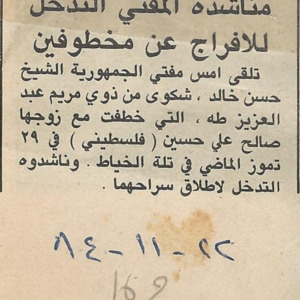 مناشدة المفتي التدخل
للافراج عن مخطوفين
تلقى امس مفتي الجمهورية الشيخ
حسن خالد ، شكوى من ذوي مريم عبد
العزيز طه ، التي خطفت مع زوجها
صالح علي حسين ( فلسطيني ) في ٢٩
تموز الماضي في تلة الخياط . وناشدوه
التدخل لاطلاق سراحهما .
٢٢ - ١١ - ٨٤